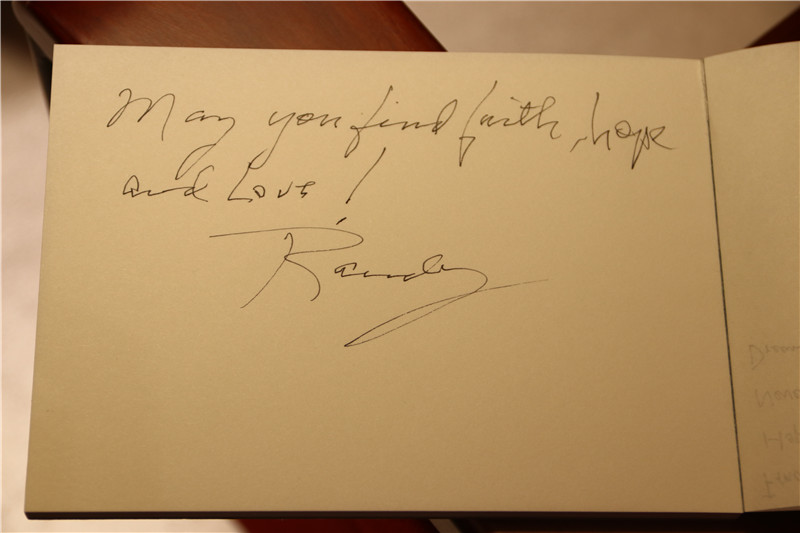 May you find faith, hope
and Love!
Randy